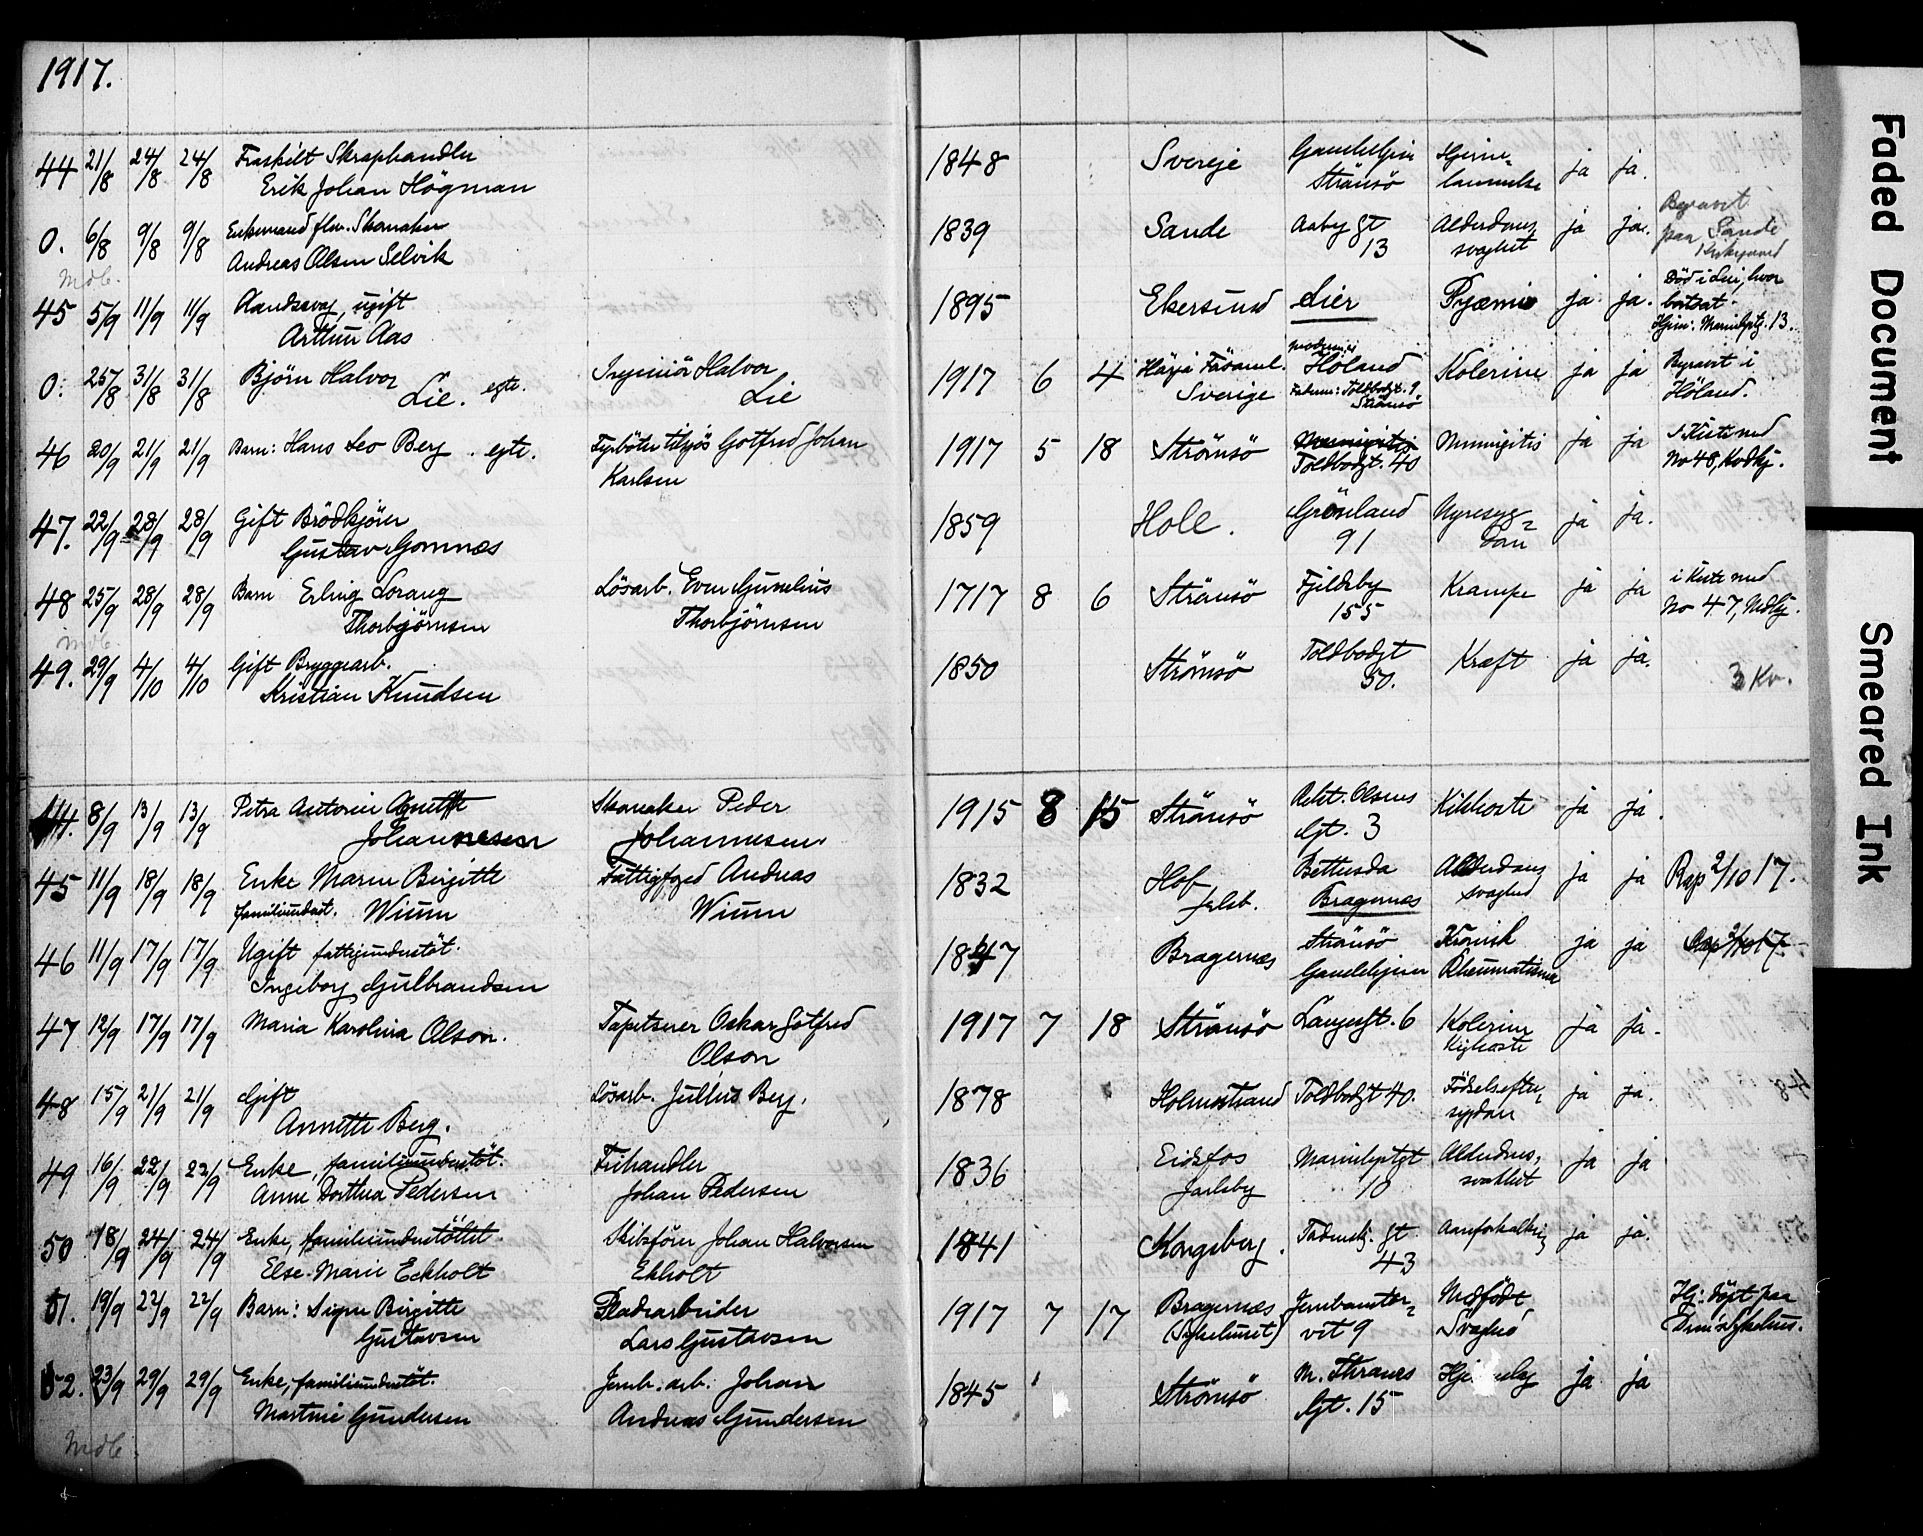 1917.
44 21/8 24/8 24/8 Fraskilt Skraphandler 1848 Sverije Gamlehjem Hjerne- ja ja.
Erik Johan Högman Strömsö lammelse
0. 6/8 9/8 9/8 Enkemand flev. Skomaker 1839 Sande Aaby gt Alderdoms ja ja. Begravet
Andreas Olsen Selvik 13 svaghet paa Sande
Kirkegaard
Mdb.
45 5/9 11/9 11/9 Aandssvag, ugift 1895 Ekersund Lier Pyæmie ja ja. Död i Lier, hvor
Arthur Aas bortsat.
Hjem: Marienlystg. 13.
0. 25/8 31/8 31/8 Björn Halvor Lie. egte. Ingeniör Halvor 1917 6 4 Sverige Höland Kolerine ja ja Begravet i
Lie Faderen: Toldbodgt. 9 Höland.
Strömsö
46 20/9 21/9 21/9 Barn: Hans Leo Berg. egte. Fyrböter tilsjös Gotfred Johan 1917 5 18 Strömsö Meningitis Meningitis ja ja I Kiste med
Karlsen Toldbodgt. 40 No 48, Kvdkj.
47. 22/9 28/9 28/9 Gift Brödkjörer 1859 Hole. Grönland Nyresyg- ja ja.
Gustav Gomnæs 91 dom
48 25/9 28/9 28/9 Barn Erling Lorang Lösarb. Even Gunelius 1717 8 6 Strömsö Fjeldsby Krampe ja ja i Kiste med
Thorbjörnsen Thorbjörnsen 155 No 47, Mdkj.
Mdb
49. 29/9 4/10 4/10 Gift Bryggearb. 1850 Strömsö Toldbodgt Kræft ja ja.
Kristian Knudsen 50. 3 Kv.
44. 8/9 13/9 13/9 Petra Antonie Anette Skomaker Peder 1915 8 15 Strömsö Gt. 3 Kikhoste ja ja.
Johannesen Johannesen
45 11/9 18/9 18/9 Enke Maren Birgitte Fattigfoged Andreas 1832 Hof Bethesda Alderdoms ja ja Rap 2/10 17.
familieundst. Wium Wium Jarlsb. Bragernæs svaghed
46 11/9 17/9 17/9 Ugift fattigunderstöt. 1847 Bragernæs Strömsö Kronisk ja ja Rap 2/10 17
Ingeborg Gulbrandsen Gamlehjem Rheumatisme
47 12/9 17/9 17/9 Maria Karolina Olson. Tapetserer Oskar Gotfred 1917 7 18 Strömsö Langesgt. 6 Kolerine ja ja.
Olson Kighoste
48 15/9 21/9 21/9 Gift Lösarb. Julius Berg. 1878 Holmestrand Toldbodgt 40. Födselsefter- ja ja.
Annette Berg. sygdom
49 16/9 22/9 22/9 Enke, familieunderstöt. Frihandler 1836 Eidsfos Marienlystgt Alderdoms, ja ja
Anne Dorthea Pedersen Johan Pedersen Jarlsby 10 svakhet
50 18/9 24/9 24/9 Enke, familieunderstöttet. Skibsförer Johan Halvorsen 1841 Kongsberg. gt. Aareforkalkning ja ja.
Else Marie Eckholt Ekholt 43
51. 19/9 22/9 22/9 Barn: Signe Birgitte Pladearbeider 1917 7 17 Bragernæs Jernbanetor- Medfödt Hj: döpt paa
Gustavsen Lars Gustavsen (Sykehuset) vet 9 Svaghed Drm. Sykehus.
52. 23/9 29/9 29/9 Enke, familieunderstöt. Jernb. arb. Johan 1845 Strömsö M. Thranes ja ja
Martine Gundersen Andreas Gundersen Gt. 15
Mdb.
Faded Document
Smeared Ink